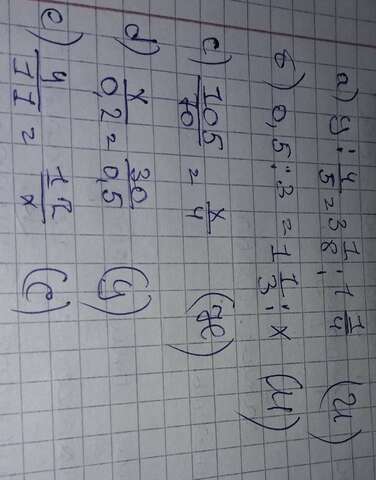 a) y : 4/5 = 3 1/8 : 1 1/4 (и)
б) 0,5 : 3 = 1 1/3 : x (м)
c) 105/40 = x/4 (ж)
d) x/0,2 = 30/0,5 (у)
e) 4/11 = 12/x (е)